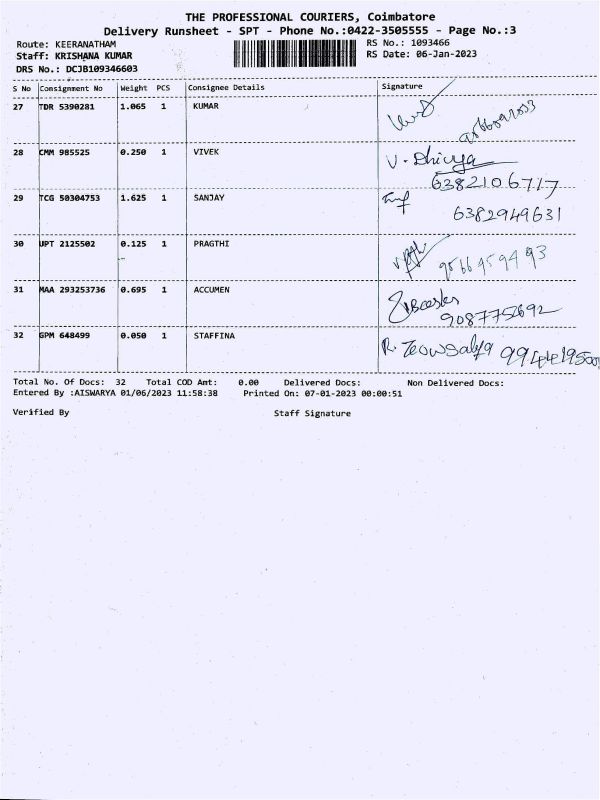 THE PROFESSIONAL COURIERS, Coimbatore
Delivery Runsheet - SPT - Phone No.:0422-3505555 - Page No.:3
Route: KEERANATHAM RS No.: 1093466
Staff: KRISHANA KUMAR RS Date: 06-Jan-2023
DRS No.: DCJB109346603
S No Consignment No Weight PCS Consignee Details Signature
27 TDR 5390281 1.065 1 KUMAR
28 CMM 985525 0.250 1 VIVEK V. Dhivya
6382106717
29 TCG 50304753 1.625 1 SANJAY
6382949631
30 UPT 2125502 0.125 1 PRAGTHI
9566459493
31 MAA 293253736 0.695 1 ACCUMEN
9087775692
32 GPM 648499 0.050 1 STAFFINA R.
Total No. Of Docs: 32 Total COD Amt: 0.00 Delivered Docs: Non Delivered Docs:
Entered By :AISWARYA 01/06/2023 11:58:38 Printed On: 07-01-2023 00:00:51
Verified By Staff Signature